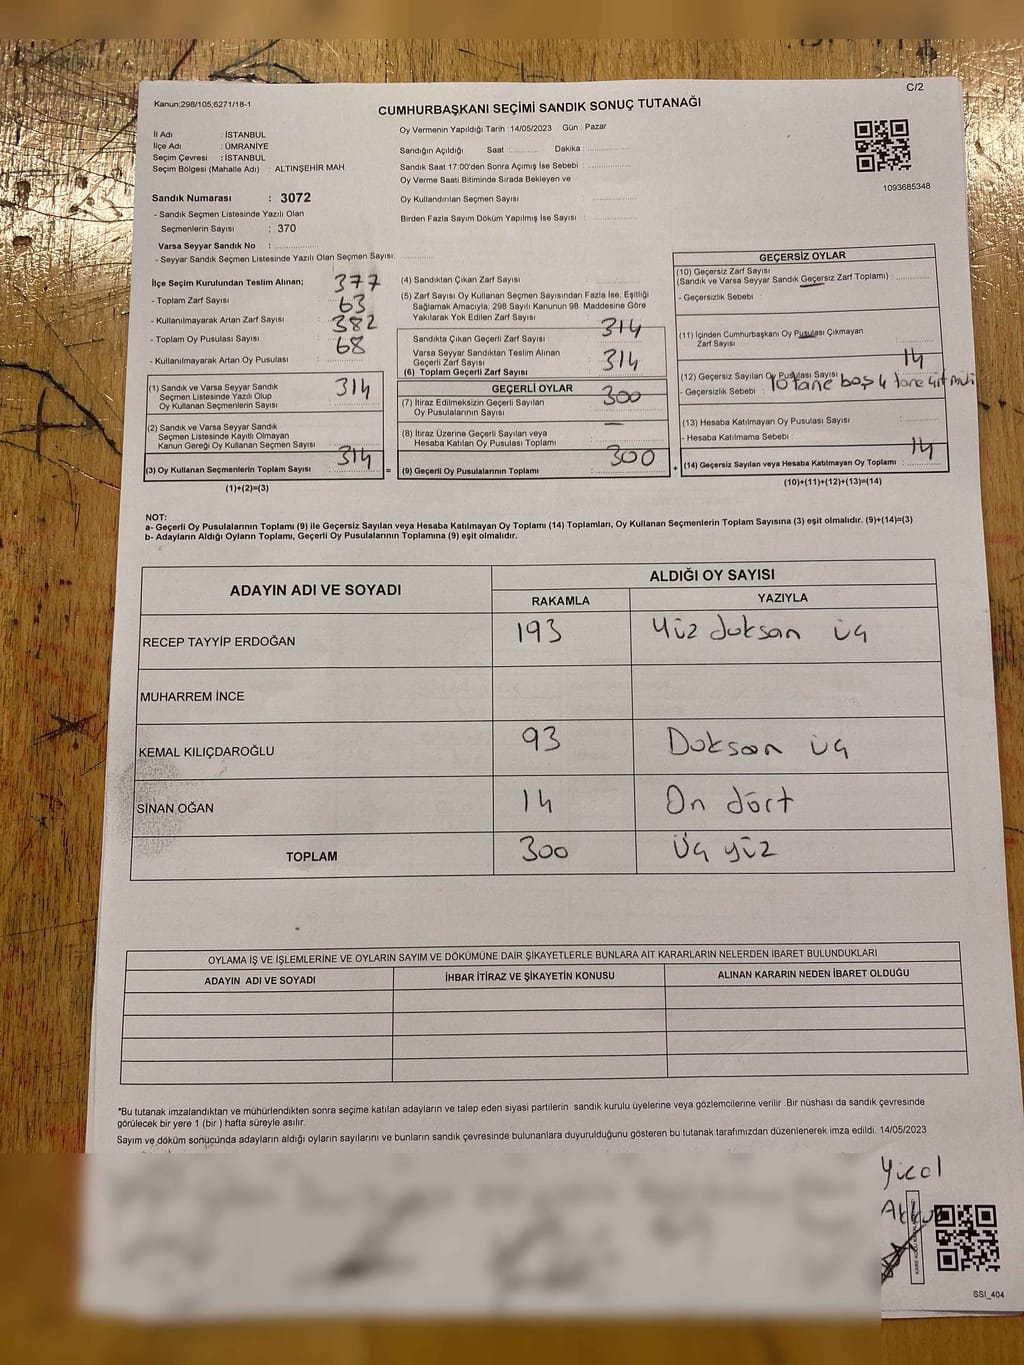 C/2
Kanun;298/105,6271/18-1
CUMHURBAŞKANI SEÇİMİ SANDIK SONUÇ TUTANAĞI
İl Adı : İSTANBUL
İlçe Adı : ÜMRANİYE
Seçim Çevresi : İSTANBUL
Seçim Bölgesi (Mahalle Adı) : ALTINŞEHİR MAH.
Oy Vermenin Yapıldığı Tarih : 14/05/2023 Gün : Pazar
Sandığın Açıldığı Saat : Dakika :
Sandık Saat 17:00'den Sonra Açımış İse Sebebi :
Oy Verme Saati Bitiminde Sırada Bekleyen ve
Oy Kullandırılan Seçmen Sayısı :
Birden Fazla Sayım Döküm Yapılmış İse Sayısı :
1093685348
Sandık Numarası : 3072
- Sandık Seçmen Listesinde Yazılı Olan
Seçmenlerin Sayısı : 370
Varsa Seyyar Sandık No :
- Seyyar Sandık Seçmen Listesinde Yazılı Olan Seçmen Sayısı:
İlçe Seçim Kurulundan Teslim Alınan;
- Toplam Zarf Sayısı : 377
- Kullanılmayarak Artan Zarf Sayısı : 63
- Toplam Oy Pusulası Sayısı : 382
- Kullanılmayarak Artan Oy Pusulası : 68
(1) Sandık ve Varsa Seyyar Sandık
Seçmen Listesinde Yazılı Olup
Oy Kullanan Seçmenlerin Sayısı : 314
(2) Sandık ve Varsa Seyyar Sandık
Seçmen Listesinde Kayıtlı Olmayan
Kanun Gereği Oy Kullanan Seçmen Sayısı :
(3) Oy Kullanan Seçmenlerin Toplam Sayısı : 314 =
(1)+(2)=(3)
(4) Sandıktan Çıkan Zarf Sayısı :
(5) Zarf Sayısı Oy Kullanan Seçmen Sayısından Fazla İse, Eşitliği
Sağlamak Amacıyla, 298 Sayılı Kanunun 98. Maddesine Göre
Yakılarak Yok Edilen Zarf Sayısı :
Sandıkta Çıkan Geçerli Zarf Sayısı : 314
Varsa Seyyar Sandıktan Teslim Alınan
Geçerli Zarf Sayısı :
(6) Toplam Geçerli Zarf Sayısı : 314
GEÇERLİ OYLAR
(7) İtiraz Edilmeksizin Geçerli Sayılan
Oy Pusulalarının Sayısı : 300
(8) İtiraz Üzerine Geçerli Sayılan veya
Hesaba Katılan Oy Pusulası Toplamı : —
(9) Geçerli Oy Pusulalarının Toplamı : 300 +
GEÇERSİZ OYLAR
(10) Geçersiz Zarf Sayısı
(Sandık ve Varsa Seyyar Sandık Geçersiz Zarf Toplamı) :
- Geçersizlik Sebebi :
(11) İçinden Cumhurbaşkanı Oy Pusulası Çıkmayan
Zarf Sayısı :
(12) Geçersiz Sayılan Oy Pusulası Sayısı : 14
- Geçersizlik Sebebi : 10 tane boş 4 tane çift mühür
(13) Hesaba Katılmayan Oy Pusulası Sayısı :
- Hesaba Katılmama Sebebi :
(14) Geçersiz Sayılan veya Hesaba Katılmayan Oy Toplamı : 14
(10)+(11)+(12)+(13)=(14)
NOT:
a- Geçerli Oy Pusulalarının Toplamı (9) ile Geçersiz Sayılan veya Hesaba Katılmayan Oy Toplamı (14) Toplamları, Oy Kullanan Seçmenlerin Toplam Sayısına (3) eşit olmalıdır. (9)+(14)=(3)
b- Adayların Aldığı Oyların Toplamı, Geçerli Oy Pusulalarının Toplamına (9) eşit olmalıdır.
ADAYIN ADI VE SOYADI ALDIĞI OY SAYISI
RAKAMLA YAZIYLA
RECEP TAYYİP ERDOĞAN 193 Yüz doksan üç
MUHARREM İNCE
KEMAL KILIÇDAROĞLU 93 Doksan üç
SİNAN OĞAN 14 On dört
TOPLAM 300 Üç yüz
OYLAMA İŞ VE İŞLEMLERİNE VE OYLARIN SAYIM VE DÖKÜMÜNE DAİR ŞİKAYETLERLE BUNLARA AİT KARARLARIN NELERDEN İBARET BULUNDUKLARI
ADAYIN ADI VE SOYADI İHBAR İTİRAZ VE ŞİKAYETİN KONUSU ALINAN KARARIN NEDEN İBARET OLDUĞU
*Bu tutanak imzalandıktan ve mühürlendikten sonra seçime katılan adayların ve talep eden siyasi partilerin sandık kurulu üyelerine veya gözlemcilerine verilir. Bir nüshası da sandık çevresinde
görülecek bir yere 1 (bir ) hafta süreyle asılır.
Sayım ve döküm sonucunda adayların aldığı oyların sayılarını ve bunların sandık çevresinde bulunanlara duyurulduğunu gösteren bu tutanak tarafımızdan düzenlenerek imza edildi. 14/05/2023
Yücel
SSI_404